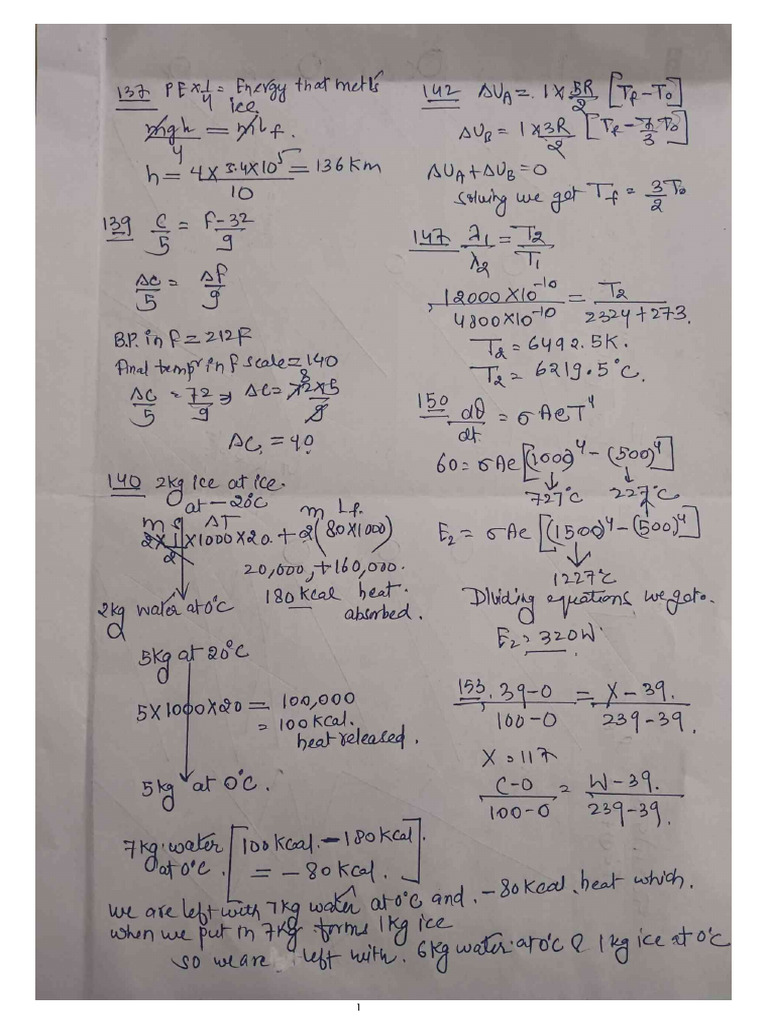 137 PE × 1/4 = Energy that melts
ice
mgh/4 = mLf.
h = 4 × 3.4×10^5/10 = 136 Km
139 C/5 = F-32/9
ΔC/5 = Δf/9
B.P. in f = 212F
final tempr in f scale = 140
ΔC/5 = 72/9 ⇒ ΔC = 72×5/9 8
ΔC = 40
140 2kg ice at ice.
at -20°C
m s ΔT m Lf.
2×1/2×1000×20 + 2(80×1000)
20,000, + 160,000.
180 Kcal heat
absorbed.
2kg water at 0°C
5kg at 20°C
5×1000×20 = 100,000
= 100 Kcal.
heat released.
5kg at 0°C.
7kg water at 0°C. [100 Kcal - 180 Kcal].
= -80 Kcal.
we are left with 7kg water at 0°C and -80 Kcal. heat which.
when we put in 7kg forms 1kg ice
so we are left with. 6kg water at 0°C & 1kg ice at 0°C
142 ΔU_A = 1 × 5R/2 [Tf - To]
ΔU_B = 1 × 3R/2 [Tf - 7/3 To]
ΔU_A + ΔU_B = 0
solving we get Tf = 3/2 To
147 λ1/λ2 = T2/T1
12000×10^-10/4800×10^-10 = T2/2324+273.
T2 = 6492.5K.
T2 = 6219.5°C.
150 dθ/dt = σAeT^4
60 = σAe[(1000)^4 - (500)^4]
727°C 227°C
E2 = σAe[(1500)^4 - (500)^4]
1227°C
Dividing equations we get.
E2 = 320W.
153. 39-0/100-0 = X-39./239-39.
X = 117
C-0/100-0 = W-39./239-39.
1